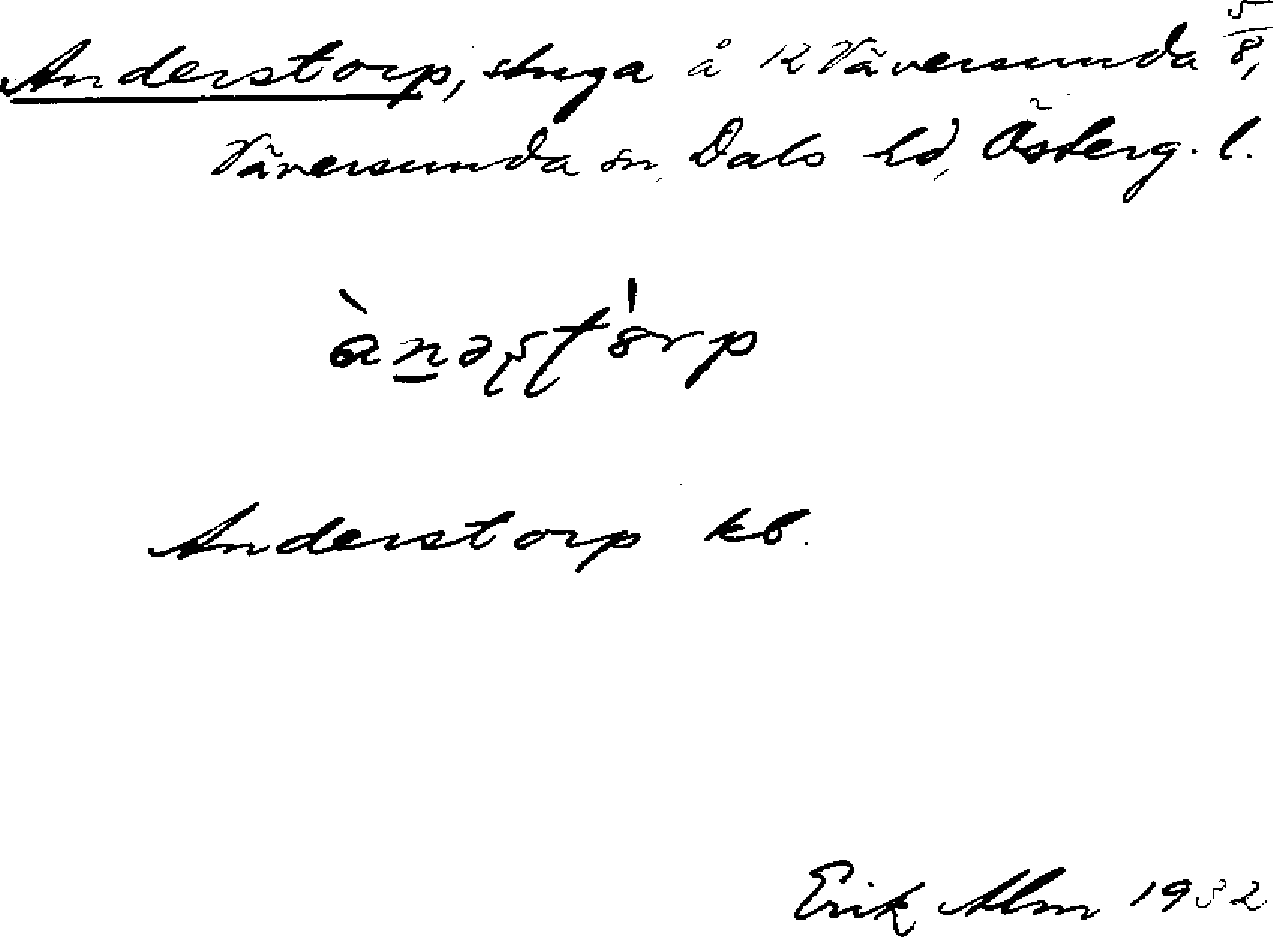 Anderstorp, stuga å 12 Väversunda 5/8,
Väversunda sn, Dals hd, Österg. l.
Anderstorp kb.
Erik Alm 1932